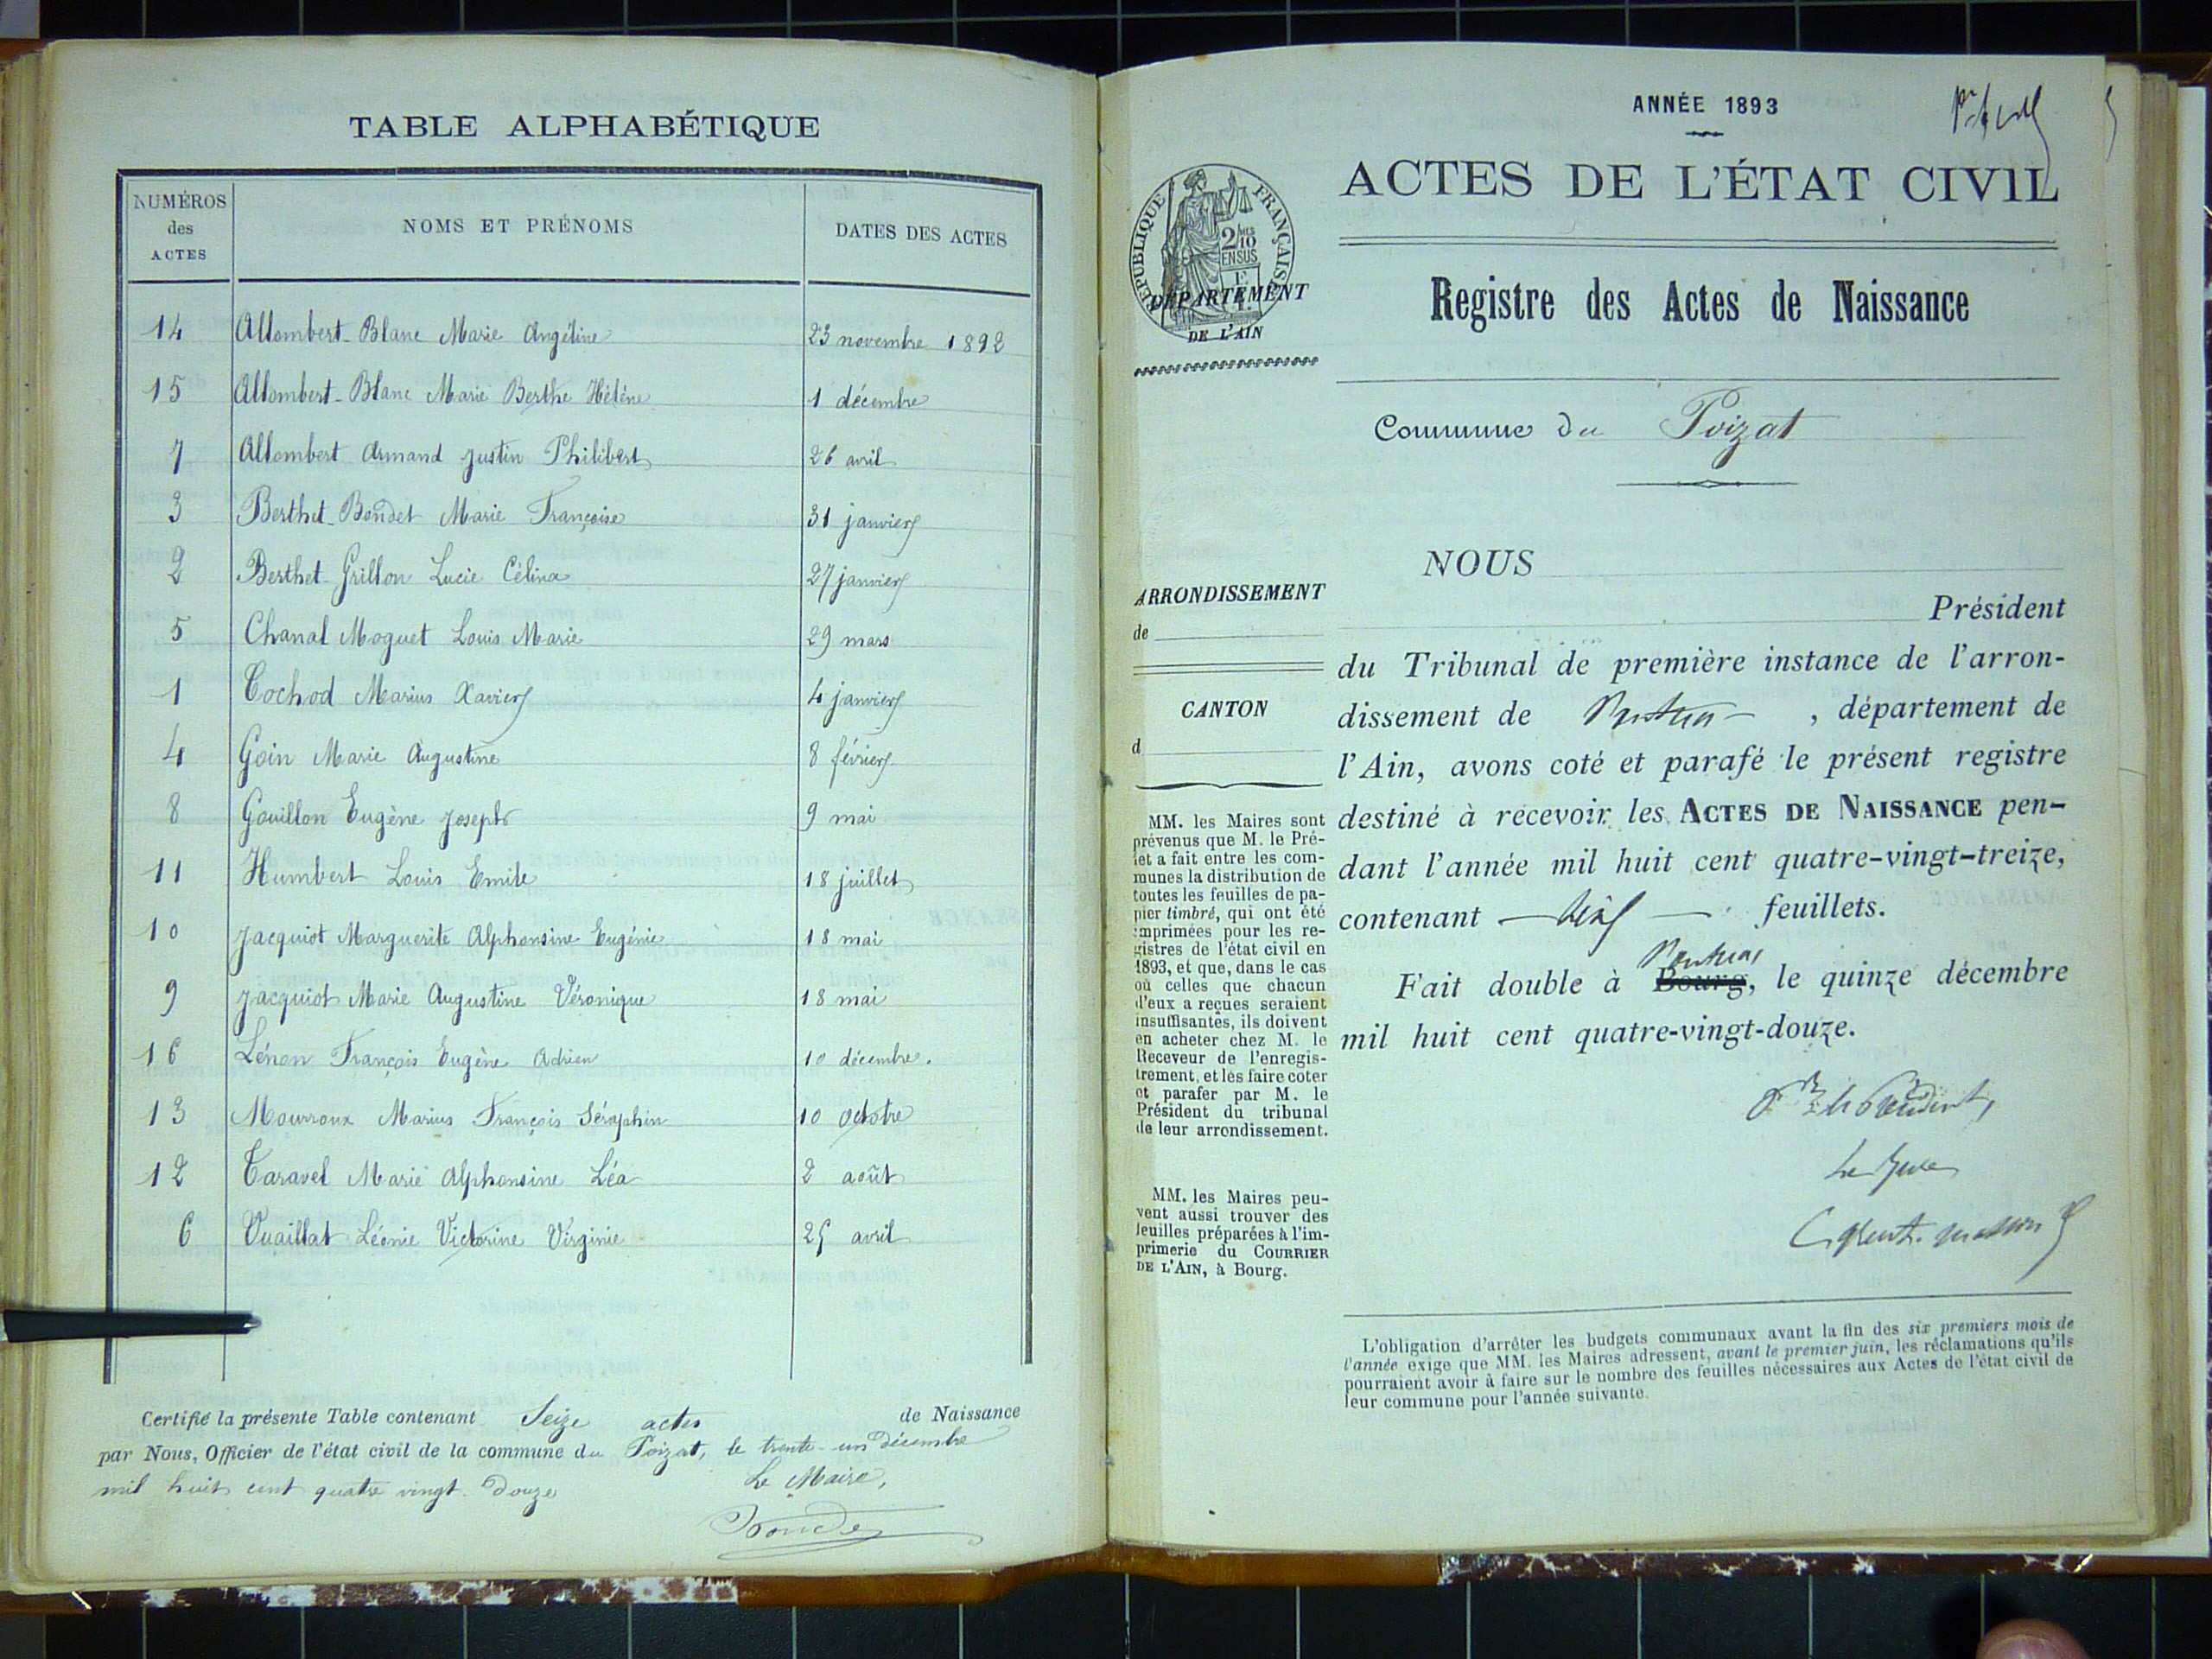 TABLE ALPHABÉTIQUE
NUMÉROS des ACTES
NOMS ET PRÉNOMS
DATES DES ACTES
14 Allombert-Blanc Marie Angéline 23 novembre 1892
15 Allombert-Blanc Marie Berthe Hélène 1 décembre
7 Allombert Armand Justin Philibert 26 avril
3 Berthet-Bondet Marie Françoise 31 janvier
2 Berthet-Grillon Lucie Célina 27 janvier
5 Chanal Moguet Louis Marie 29 mars
1 Cochod Marius Xavier 4 janvier
4 Goin Marie Augustine 8 février
8 Gouillon Eugène Joseph 9 mai
11 Humbert Louis Emile 18 juillet
10 Jacquiot Marguerite Alphonsine Eugénie 18 mai
9 Jacquiot Marie Augustine Véronique 18 mai
16 Lénon François Eugène Adrien 10 décembre.
13 Mourroux Marius François Séraphin 10 octobre
12 Taravel Marie Alphonsine Léa 2 août
6 Vuaillat Léonie Victorine Virginie 25 avril
Certifié la présente Table contenant Seize actes de Naissance
par Nous, Officier de l'état civil de la commune du Poizat, le trente-un décembre
mil huit cent quatre vingt-douze Le Maire,
ANNÉE 1893
ACTES DE L'ÉTAT CIVIL
RÉPUBLIQUE FRANÇAISE
2/10 EN SUS
DÉPARTEMENT
DE L'AIN
Registre des Actes de Naissance
Commune du Poizat
NOUS
ARRONDISSEMENT
de
Président
du Tribunal de première instance de l'arron-
CANTON
d
dissement de Nantua, département de
l'Ain, avons coté et parafé le présent registre
destiné à recevoir les ACTES DE NAISSANCE pen-
dant l'année mil huit cent quatre-vingt-treize,
contenant feuillets.
Nantua
Fait double à Bourg, le quinze décembre
mil huit cent quatre-vingt-douze.
MM. les Maires sont
prévenus que M. le Pré-
fet a fait entre les com-
munes la distribution de
toutes les feuilles de pa-
pier timbré, qui ont été
imprimées pour les re-
gistres de l'état civil en
1893, et que, dans le cas
où celles que chacun
d'eux a reçues seraient
insuffisantes, ils doivent
en acheter chez M. le
Receveur de l'enregis-
trement, et les faire coter
et parafer par M. le
Président du tribunal
de leur arrondissement.
MM. les Maires peu-
vent aussi trouver des
feuilles préparées à l'im-
primerie du COURRIER
DE L'AIN, à Bourg.
Pr le Président,
Le Juge
L'obligation d'arrêter les budgets communaux avant la fin des six premiers mois de
l'année exige que MM. les Maires adressent, avant le premier juin, les réclamations qu'ils
pourraient avoir à faire sur le nombre des feuilles nécessaires aux Actes de l'état civil de
leur commune pour l'année suivante.